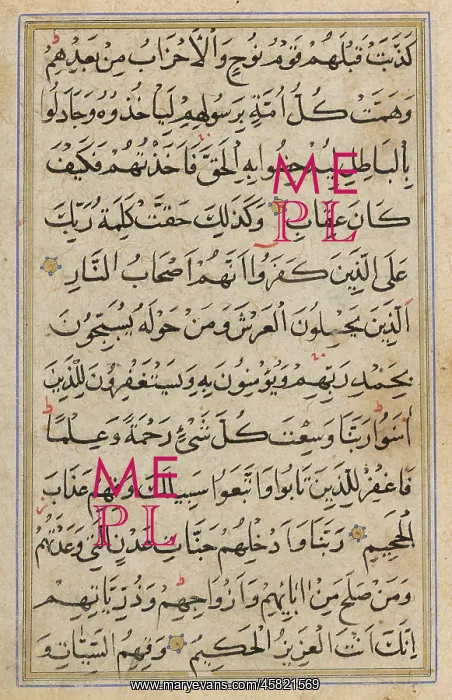 كَذَّبَتْ قَبْلَهُمْ قَوْمُ نُوحٍ وَالْأَحْزَابُ مِنْ بَعْدِهِمْ
وَهَمَّتْ كُلُّ أُمَّةٍ بِرَسُولِهِمْ لِيَأْخُذُوهُ وَجَادَلُوا
بِالْبَاطِلِ لِيُدْحِضُوا بِهِ الْحَقَّ فَأَخَذْتُهُمْ فَكَيْفَ
كَانَ عِقَابِ وَكَذَلِكَ حَقَّتْ كَلِمَةُ رَبِّكَ
عَلَى الَّذِينَ كَفَرُوا أَنَّهُمْ أَصْحَابُ النَّارِ
الَّذِينَ يَحْمِلُونَ الْعَرْشَ وَمَنْ حَوْلَهُ يُسَبِّحُونَ
بِحَمْدِ رَبِّهِمْ وَيُؤْمِنُونَ بِهِ وَيَسْتَغْفِرُونَ لِلَّذِينَ
آمَنُوا رَبَّنَا وَسِعْتَ كُلَّ شَيْءٍ رَحْمَةً وَعِلْمًا
فَاغْفِرْ لِلَّذِينَ تَابُوا وَاتَّبَعُوا سَبِيلَكَ وَقِهِمْ عَذَابَ
الْجَحِيمِ رَبَّنَا وَأَدْخِلْهُمْ جَنَّاتِ عَدْنٍ الَّتِي وَعَدْتَهُمْ
وَمَنْ صَلَحَ مِنْ آبَائِهِمْ وَأَزْوَاجِهِمْ وَذُرِّيَّاتِهِمْ
إِنَّكَ أَنْتَ الْعَزِيزُ الْحَكِيمُ وَقِهِمُ السَّيِّئَاتِ وَ
ME
PL
ME
PL
www.maryevans.com/45821569